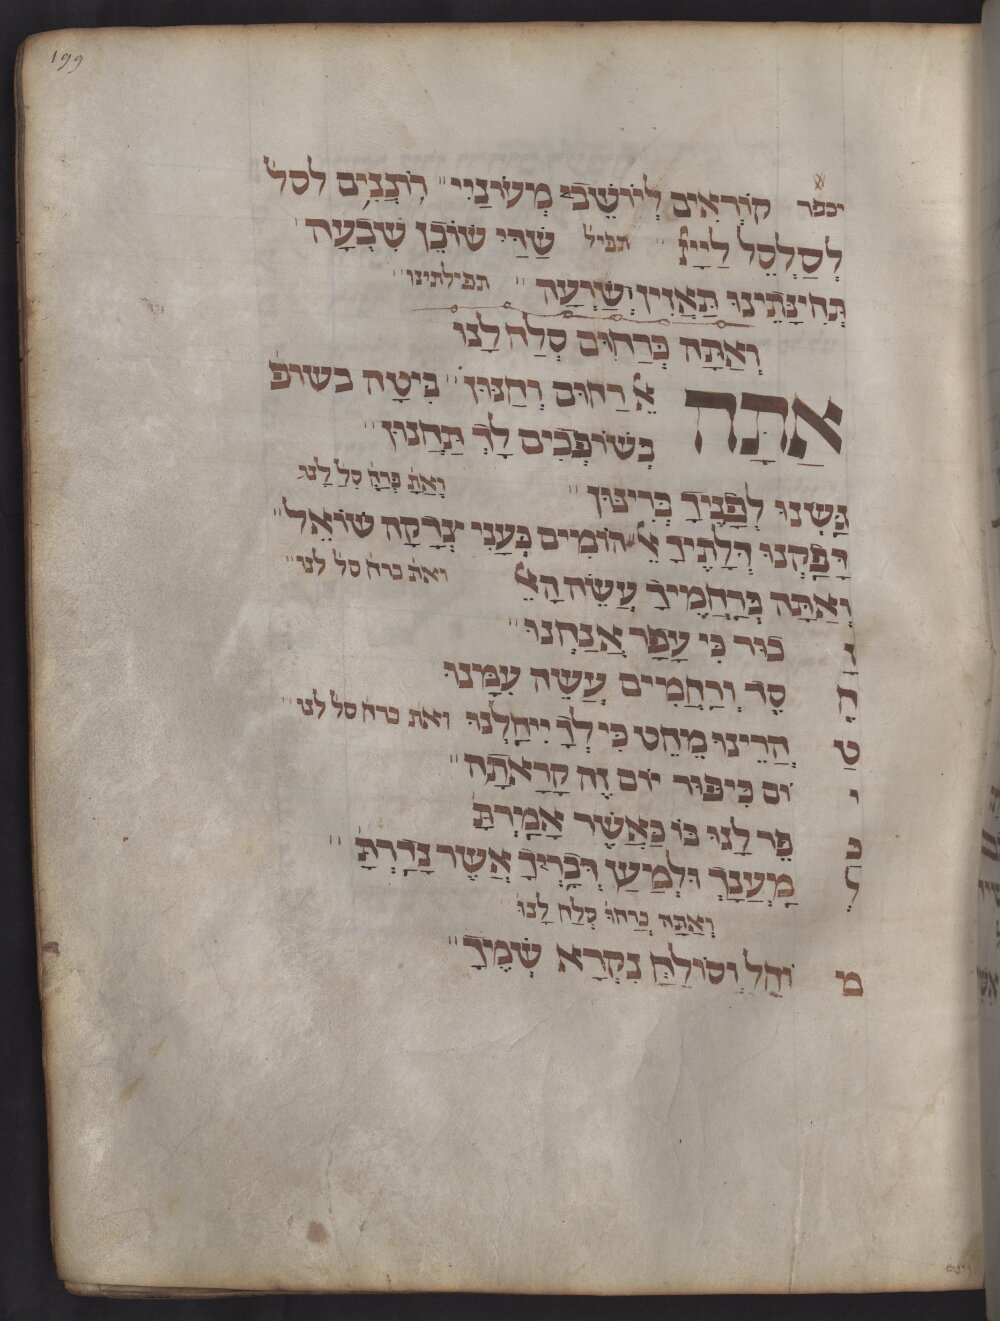 199
יכפר קוֹרְאִים לְיוֹשֵׁבִי מְעוֹנַיי רוֹנְנִים לסל
לְסַלְסֵל לַיָיָ תפיל שַׁדַּי שׁוֹכֵן שִׁבְעָה
תְּחִינָתֵינוּ תַּאֲזִין וְשַׁוְעָה תפילתינו
וְאַתָּה כְּרַחוּם סְלַח לָנוּ
אַתָה אֵל רַחוּם וְחַנּוּן בִּיטָה בשופ
בְּשׁוֹפְכִים לָךְ תַּחֲנוּן
גַּשְׁנוּ לְפָנֶיךָ כְּרִיצּוּן וְאַתָּ כְּרַח סְל לָנוּ
דָּפַקְנוּ דְּלָתֶיךָ אֵל הוֹמִים כְּעָנִי צְדָקָה שׁוֹאֵל
וְאַתָּה כְּרַחֲמֶיךָ עֲשֵׂה הָאֵל ואת כרח סל לנו
זָ כוּר כִּי עָפָר אֲנַחְנוּ
חָ סֶד וְרַחֲמִים עֲשֵׂה עִמָּנוּ
טַ הֲרֵינוּ מֵחֵט כִּי לְךָ יִיחַלְנוּ ואת כרח סל לנו
י וֹם כִּיפּוּר יוֹם זֶה קָרָאתָה
כַּ פֵּר לָנוּ בּוֹ כַּאֲשֶׁר אָמַרְתָּ
לְ מַעַנְךָ וּלְמַעַן דְּבָרֶיךָ אֲשֶׁר נָדַרְתָּ
וְאַתָּה כְּרַחוּ סְלַח לָנוּ
מ וֹחֵל וְסוֹלֵחַ נִקְרָא שְׁמֶךָ